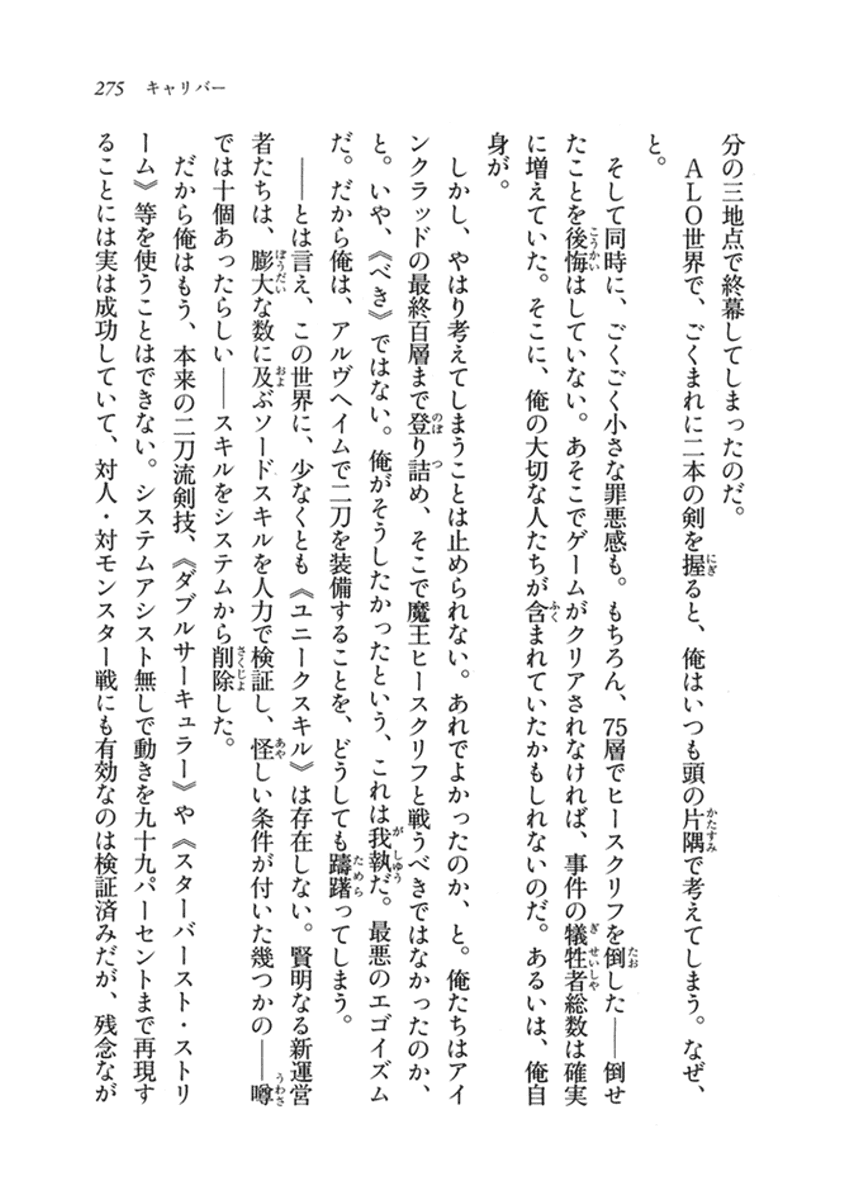 275 キャリバー
分の三地点で終幕してしまったのだ。
ALO世界で、ごくまれに二本の剣を握ると、俺はいつも頭の片隅で考えてしまう。なぜ、
と。
そして同時に、ごくごく小さな罪悪感も。もちろん、75層でヒースクリフを倒した――倒せ
たことを後悔はしていない。あそこでゲームがクリアされなければ、事件の犠牲者総数は確実
に増えていた。そこに、俺の大切な人たちが含まれていたかもしれないのだ。あるいは、俺自
身が。
しかし、やはり考えてしまうことは止められない。あれでよかったのか、と。俺たちはアイ
ンクラッドの最終百層まで登り詰め、そこで魔王ヒースクリフと戦うべきではなかったのか、
と。いや、《べき》ではない。俺がそうしたかったという、これは我執だ。最悪のエゴイズム
だ。だから俺は、アルヴヘイムで二刀を装備することを、どうしても躊躇ってしまう。
――とは言え、この世界に、少なくとも《ユニークスキル》は存在しない。賢明なる新運営
者たちは、膨大な数に及ぶソードスキルを人力で検証し、怪しい条件が付いた幾つかの――噂
では十個あったらしい――スキルをシステムから削除した。
だから俺はもう、本来の二刀流剣技、《ダブルサーキュラー》や《スターバースト・ストリ
ーム》等を使うことはできない。システムアシスト無しで動きを九十九パーセントまで再現す
ることには実は成功していて、対人・対モンスター戦にも有効なのは検証済みだが、残念なが